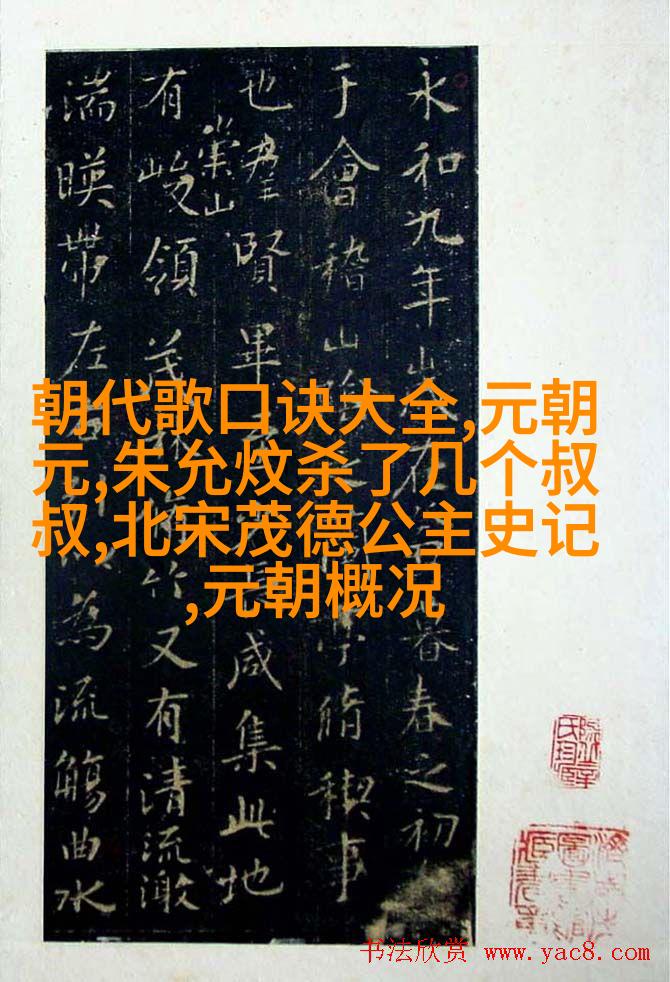 永和九年在暮春之初
于會稽山脩禊事
也羣賢畢咸集此地
崇山
有峻領茂竹又有清流激
湍暎帶左為流觴曲水
朝代歌口诀大全,元朝
元,朱允炆杀了几个叔
叔,北宋茂德公主史记
,元朝概况
书法欣赏 www.yac8.com